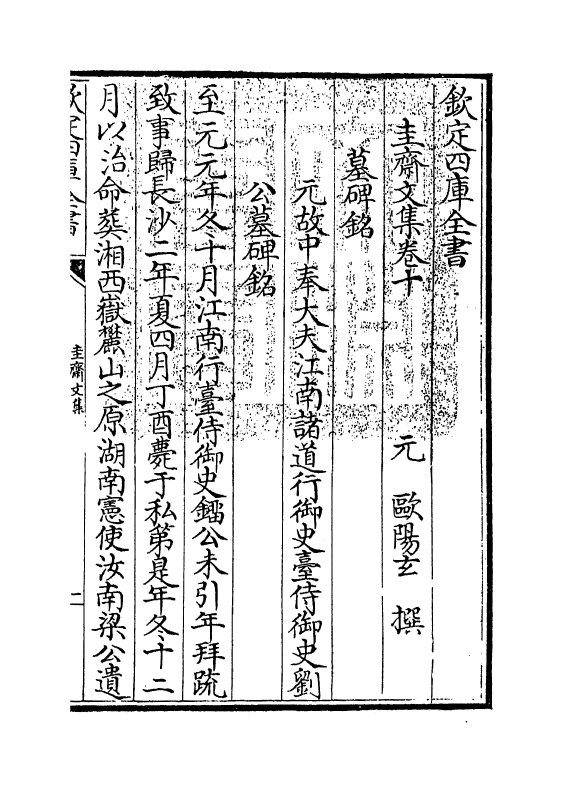 欽定四庫全書
圭齋文集卷十
元 歐陽玄 撰
墓碑銘
元故中奉大夫江南諸道行御史臺侍御史劉
公墓碑銘
至元元年冬十月江南行臺侍御史鐂公未引年拜䟽
致事歸長沙二年夏四月丁酉薨于私第是年冬十二
月以治命葬湘西嶽麓山之原湖南憲使汝南梁公遺
欽定四庫全書
圭齋文集